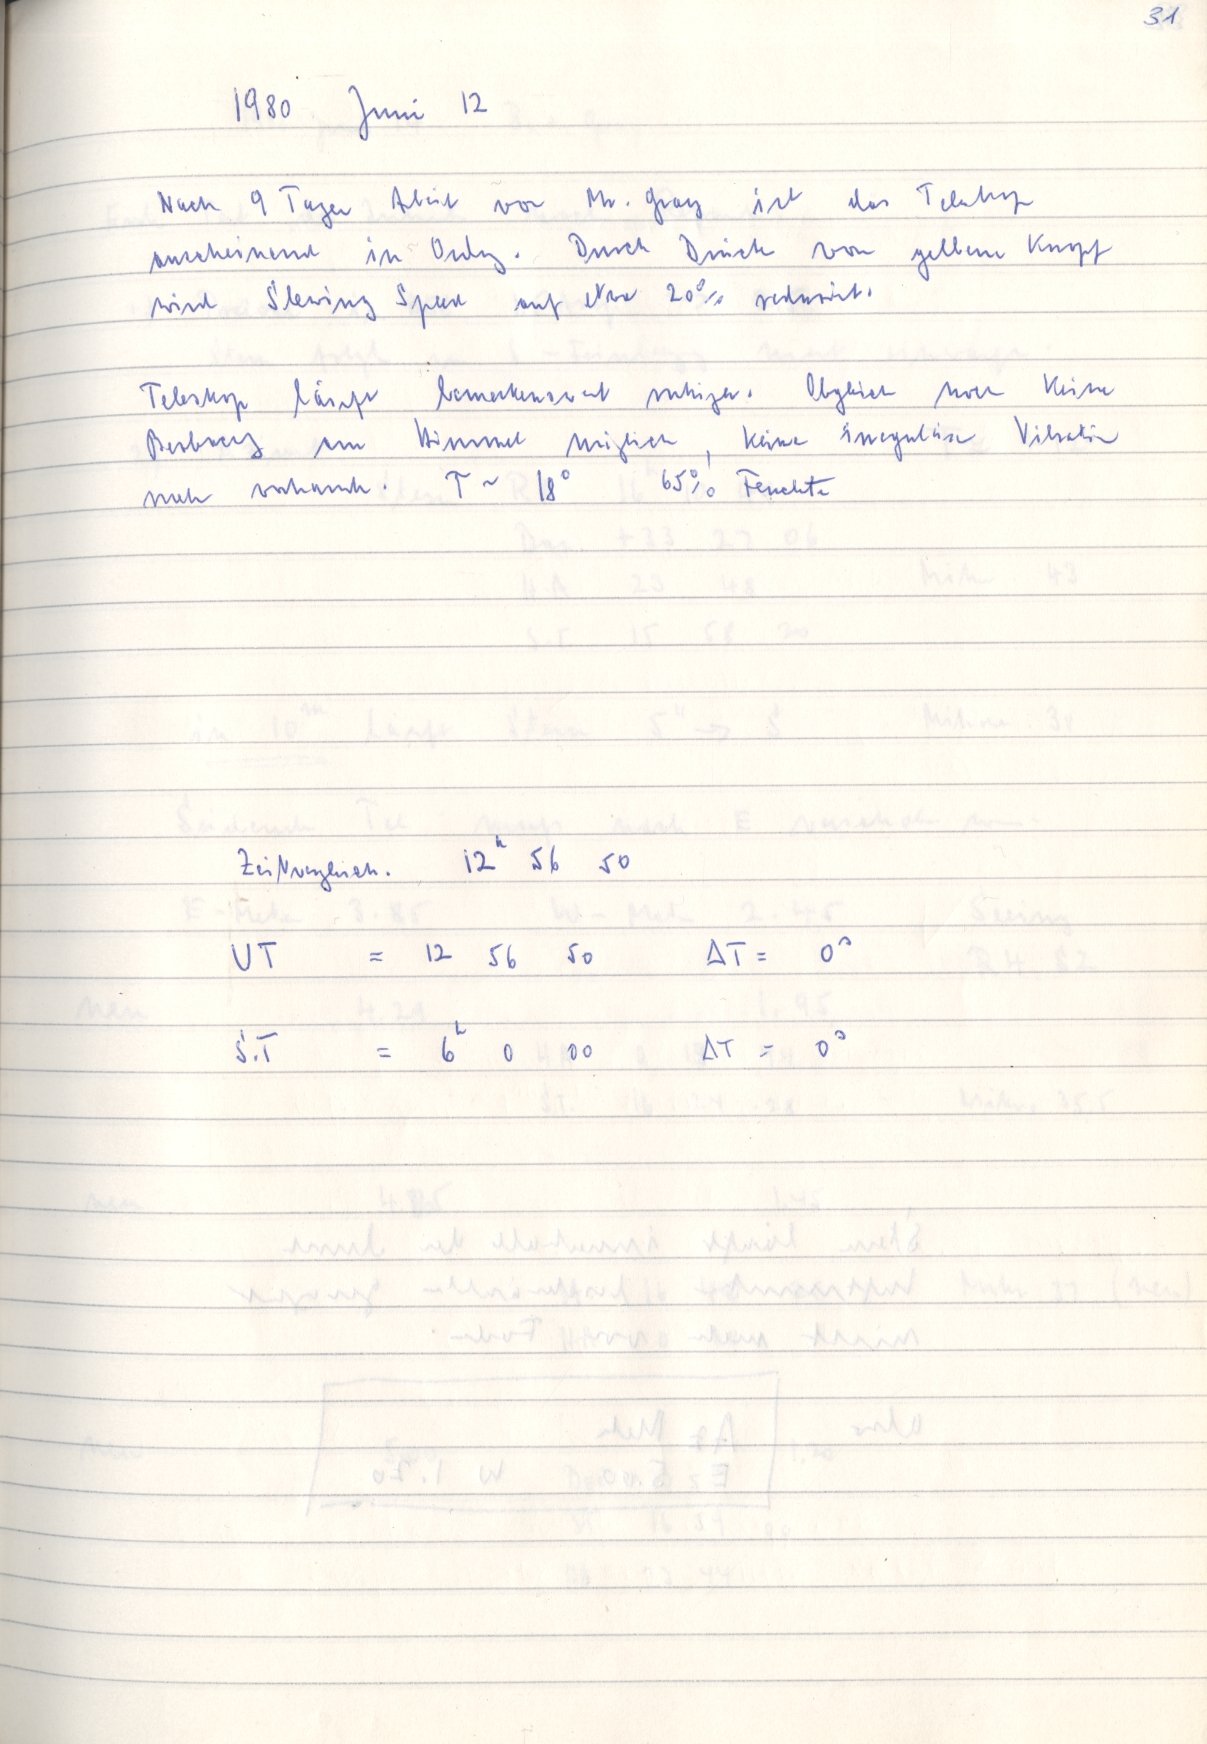 31
1980 Juni 12
Nach 9 Tagen Arbeit von Mr. Gray ist das Teleskop
anscheinend in Ordng. Durch Drück von gelbem Knopf
wird Slewing Speed auf etwa 20% reduziert.
Teleskop läuft bemerkenswert ruhiger. Obgleich noch keine
Beobacg am Himmel möglich, keine irreguläre Vibration
mehr vorhanden. T ~ 18° 65% Feuchte
Zeitvergleich. 12h 56 50
UT = 12 56 50 ΔT = 0s
S.T = 6h 0 00 ΔT = 0s